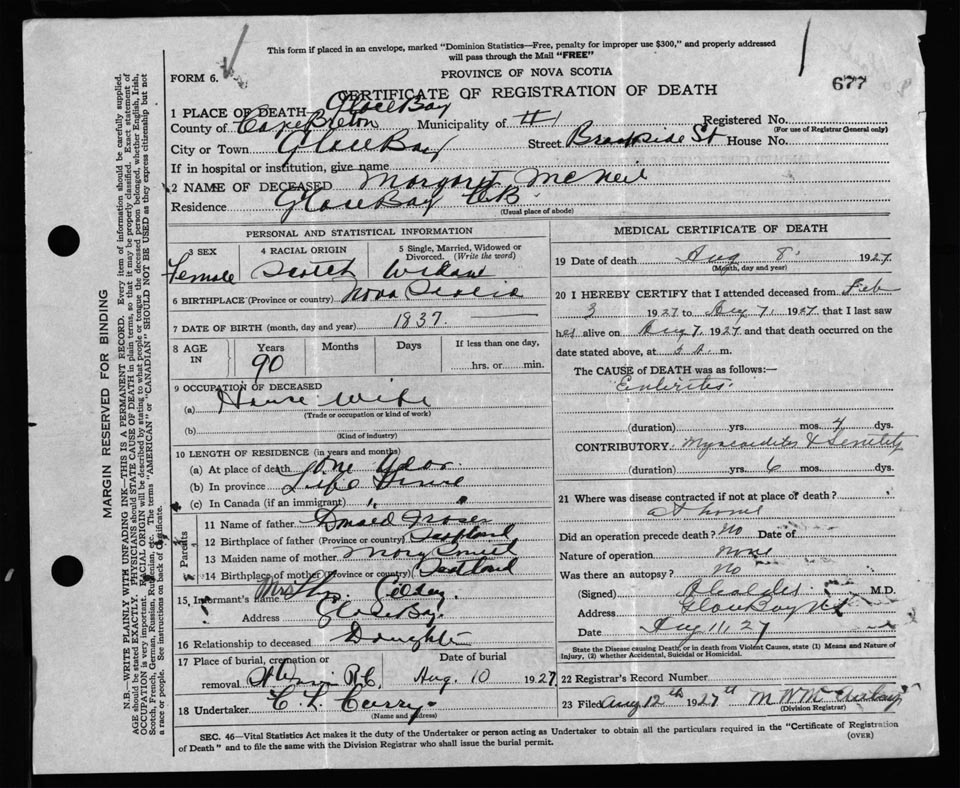 This form if placed in an envelope, marked "Dominion Statistics—Free, penalty for improper use $300," and properly addressed
will pass through the Mail "FREE"
FORM 6.
PROVINCE OF NOVA SCOTIA
677
CERTIFICATE OF REGISTRATION OF DEATH
1 PLACE OF DEATH Glace Bay
County of Cape Breton Municipality of #1 Registered No.
(For use of Registrar General only)
City or Town Glace Bay Street Brookside St House No.
If in hospital or institution, give name
2 NAME OF DECEASED Margaret McNeil
Residence Glace Bay C.B.
(Usual place of abode)
PERSONAL AND STATISTICAL INFORMATION
3 SEX 4 RACIAL ORIGIN 5 Single, Married, Widowed or Divorced. (Write the word)
Female Scotch Widow
6 BIRTHPLACE (Province or country) Nova Scotia
7 DATE OF BIRTH (month, day and year) 1837
8 AGE IN Years Months Days If less than one day,
90 hrs. or min.
9 OCCUPATION OF DECEASED
(a) House wife
(Trade or occupation or kind of work)
(b)
(Kind of industry)
10 LENGTH OF RESIDENCE (in years and months)
(a) At place of death One year
(b) In province Life
(c) In Canada (if an immigrant) " "
Parents
11 Name of father Donald Fraser
12 Birthplace of father (Province or country) Scotland
13 Maiden name of mother Mary Smith
14 Birthplace of mother (Province or country) Scotland
15 Informant's name Mrs
Address Glace Bay
16 Relationship to deceased Daughter
17 Place of burial, cremation or Date of burial
removal R.C. Aug. 10 1927
18 Undertaker C. L. Curry
(Name and address)
MEDICAL CERTIFICATE OF DEATH
19 Date of death Aug 8 1927
(Month, day and year)
20 I HEREBY CERTIFY that I attended deceased from Feb
3 1927 to Aug 7, 1927 that I last saw
her alive on Aug 7, 1927 and that death occurred on
date stated above, at a. m.
The CAUSE of DEATH was as follows:—
Enteritis
(duration) yrs. mos. 4 dys.
CONTRIBUTORY Myocarditis & Senility
(duration) yrs. 6 mos. dys.
21 Where was disease contracted if not at place of death?
at home
Did an operation precede death? No Date of
Nature of operation None
Was there an autopsy? No
(Signed) M.D.
Address Glace Bay N.S.
Date Aug 11, 27
State the Disease causing Death, or in death from Violent Causes, state (1) Means and Nature of
Injury, (2) whether Accidental, Suicidal or Homicidal.
22 Registrar's Record Number
23 Filed Aug 12th 1927
(Division Registrar)
SEC. 46—Vital Statistics Act makes it the duty of the Undertaker or person acting as Undertaker to obtain all the particulars required in the "Certificate of Registration
of Death" and to file the same with the Division Registrar who shall issue the burial permit.
(OVER)
MARGIN RESERVED FOR BINDING
N.B.—WRITE PLAINLY WITH UNFADING INK—THIS IS A PERMANENT RECORD. Every item of information should be carefully supplied.
AGE should be stated EXACTLY. PHYSICIANS should STATE CAUSE OF DEATH in plain terms, so that it may be properly classified. Exact statement of
OCCUPATION is very important. RACIAL ORIGIN will be described by stating to what people or tongue the deceased person belonged, whether English, Irish,
Scotch, French, German, Russian, Ruthenian, etc. The terms "AMERICAN" or "CANADIAN" SHOULD NOT BE USED as they express citizenship but not
a race or people. See instructions on back of certificate.